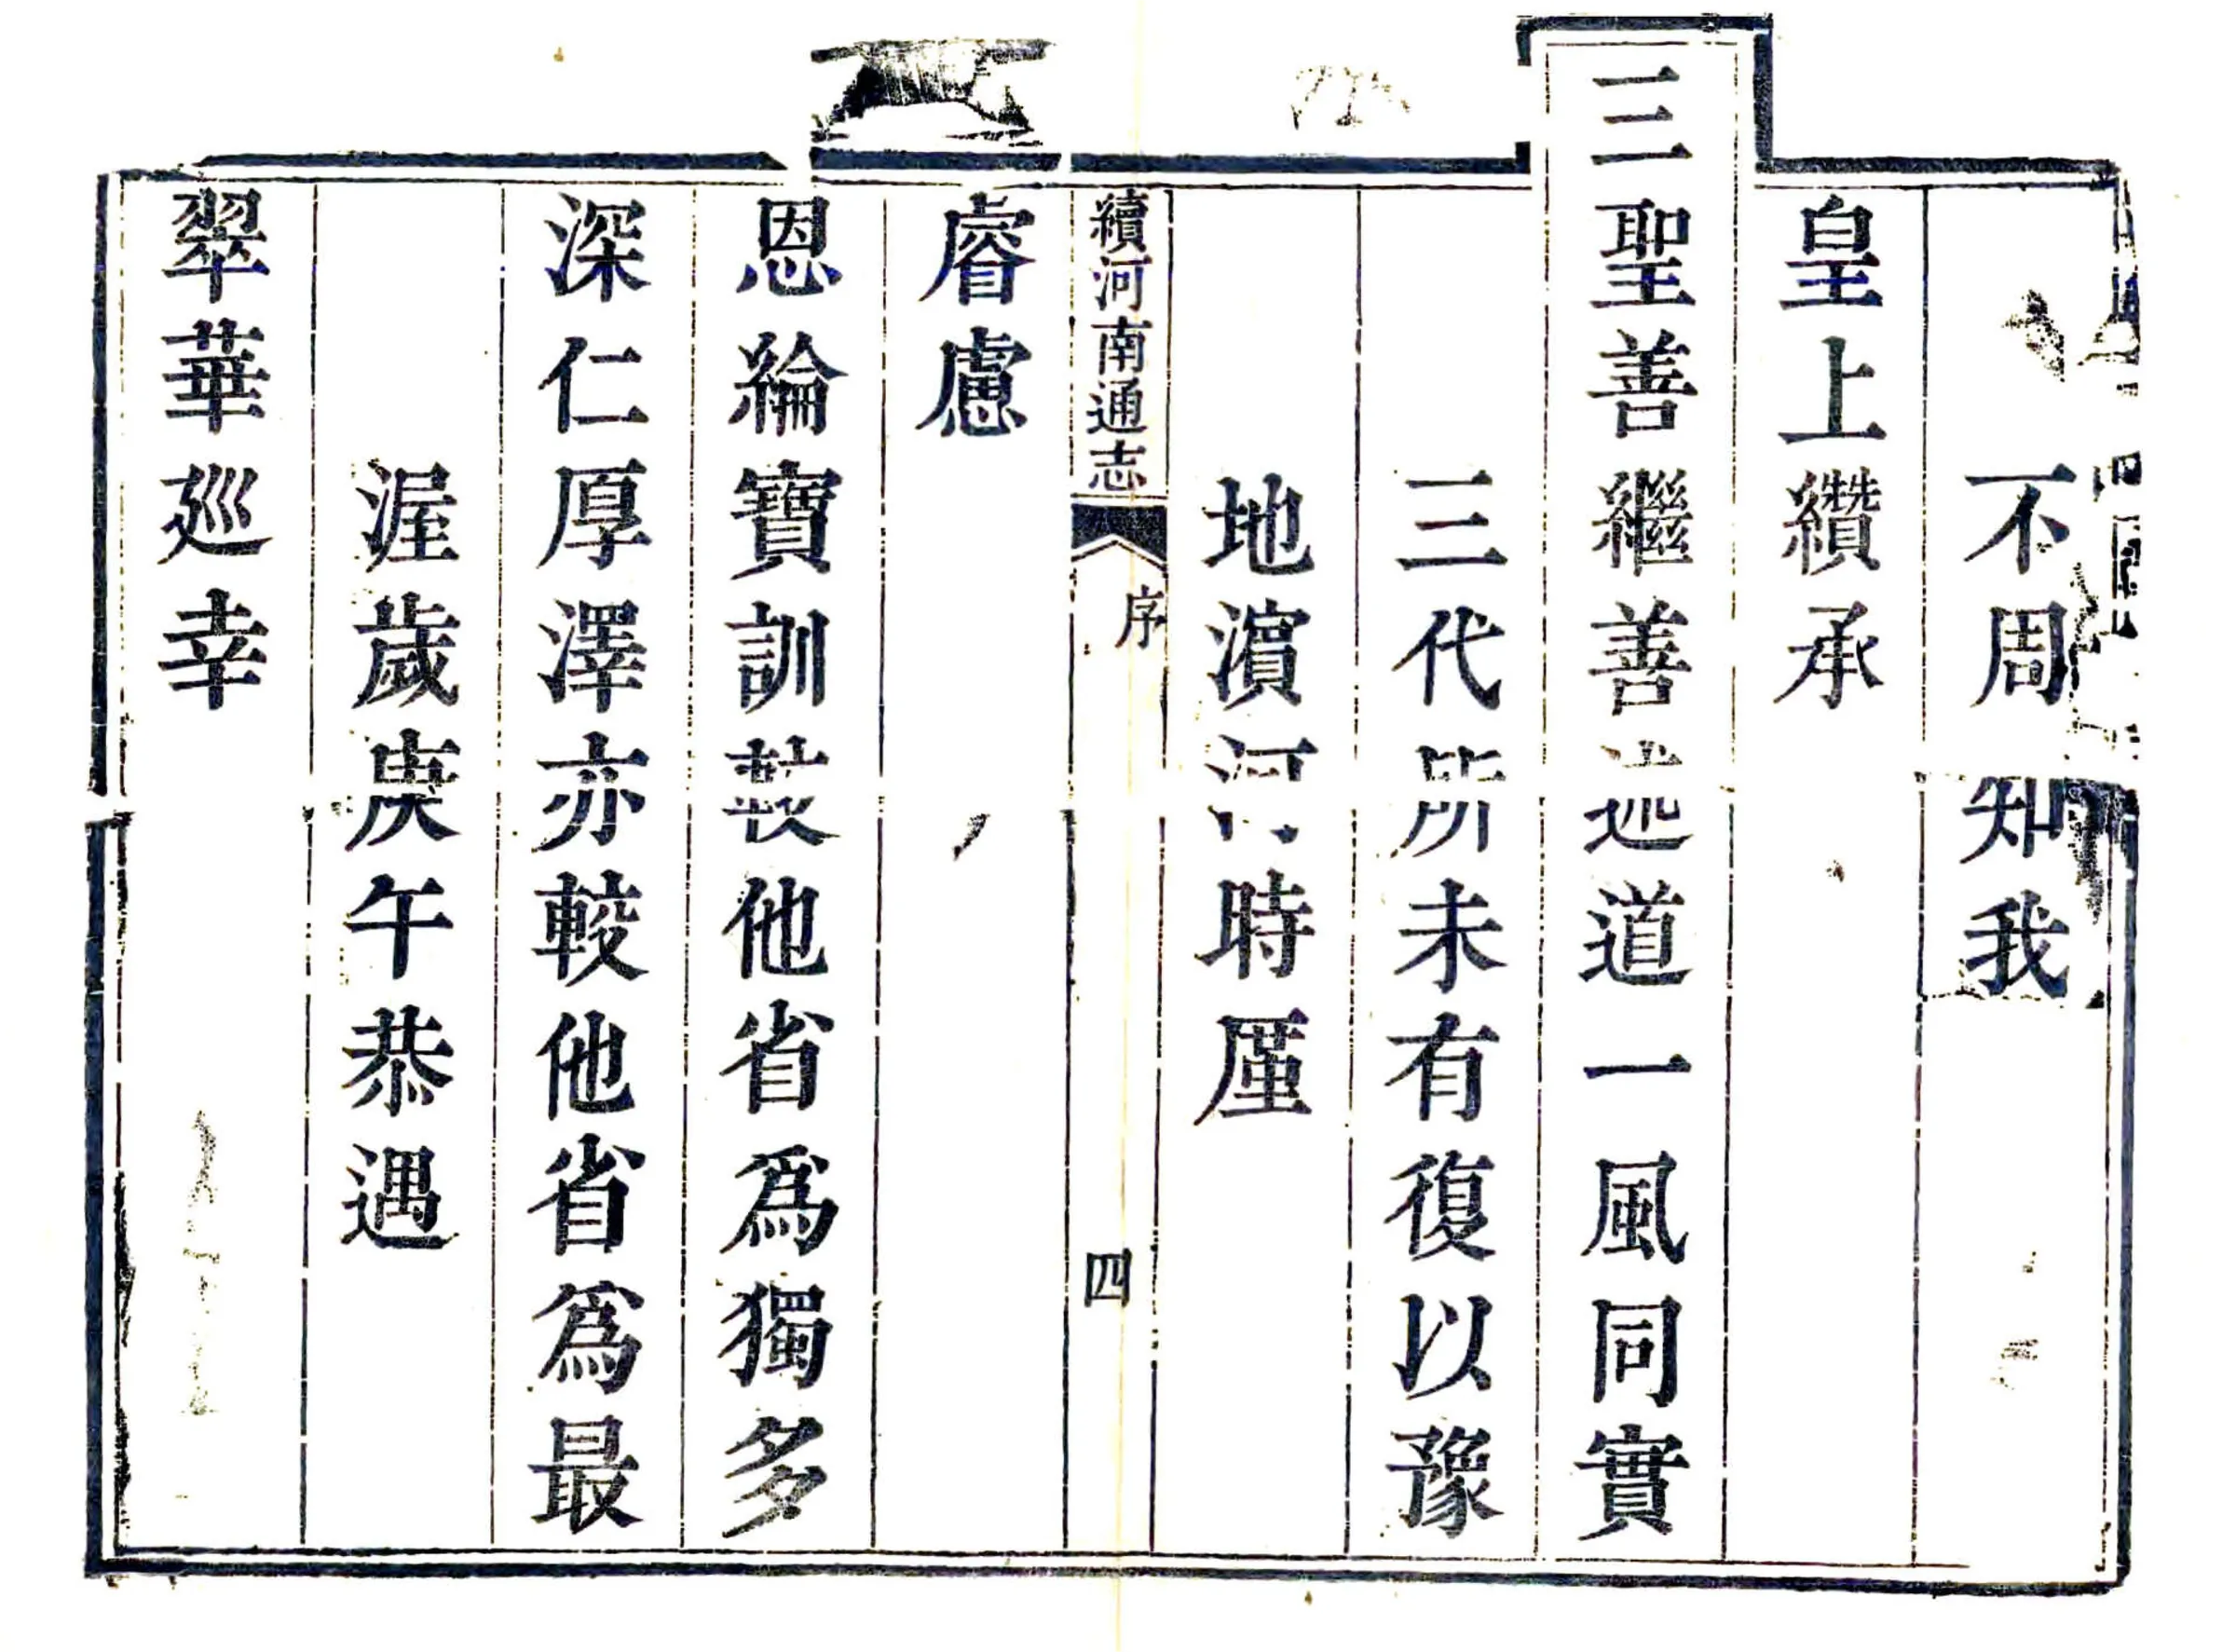 不周知我
皇上纘承
三聖善繼善述道一風同實
三代所未有復以豫
地濵河時厪
續河南通志
序
四
睿慮
恩綸寶訓較他省為獨多
深仁厚澤亦較他省為最
渥歲庚午恭遇
翠華廵幸